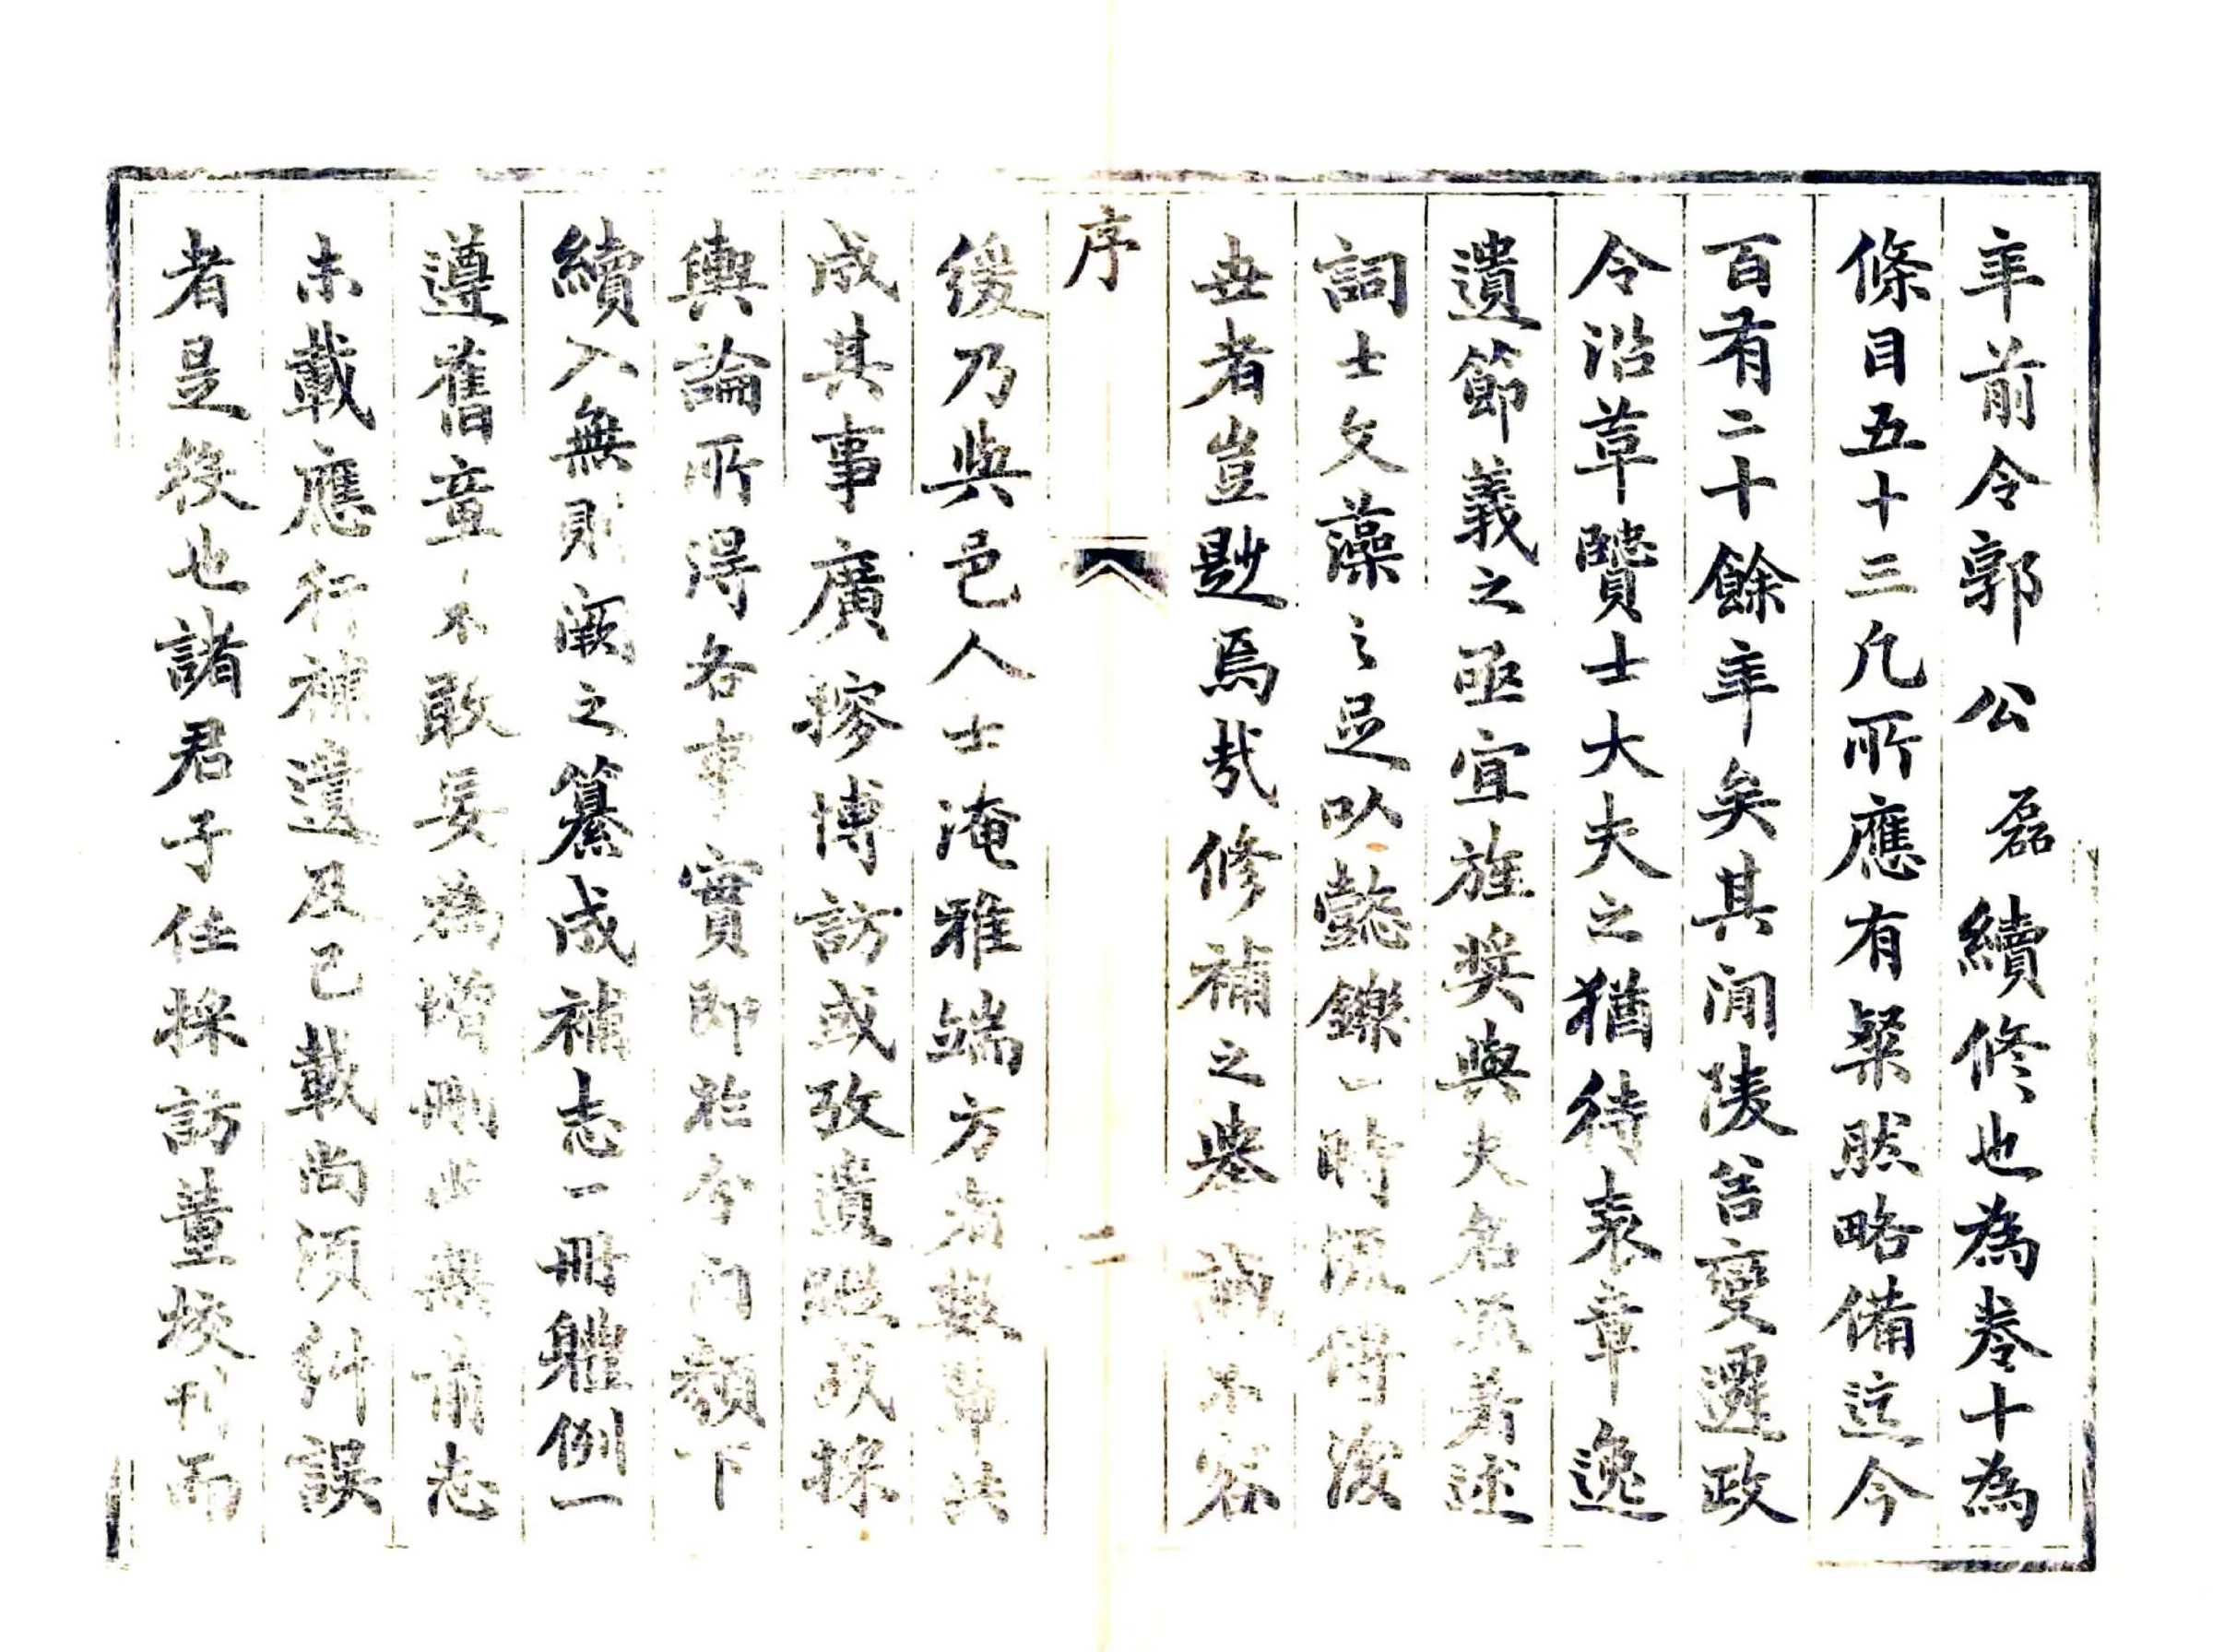 年前令郭公磊續修也為卷十為
條目五十三凡所應有粲然略備迄今
百有二十餘年矣其間陵谷變遷政
令沿革賢士大夫之猶待表章逸
遺節義之亟宜旌奨與夫名流著述
詞士文藻之足以懿鑠一時流傳後
世者豈尠焉哉修補之舉誠不容
序
二
緩乃與邑人士淹雅端方者數軰共
成其事廣搜博訪或攷遺蹤或採
輿論所得各事實即於今門類下
續入無則闕之纂成補志一冊體例一
遵舊章不敢妄為增刪此無前志
未載應行補遺及已載尚須糾誤
者是役也諸君子任採訪董校刊而